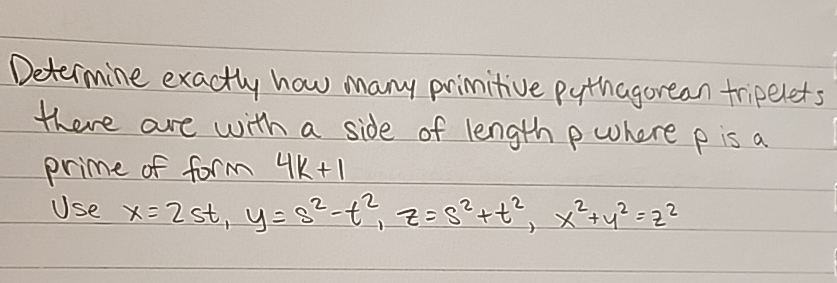 Determine exactly how many primitive pythagorean tripelets
there are with a side of length p where p is a
prime of form 4k+1
Use x=2st, y=s²-t², z=s²+t², x²+y²=z²